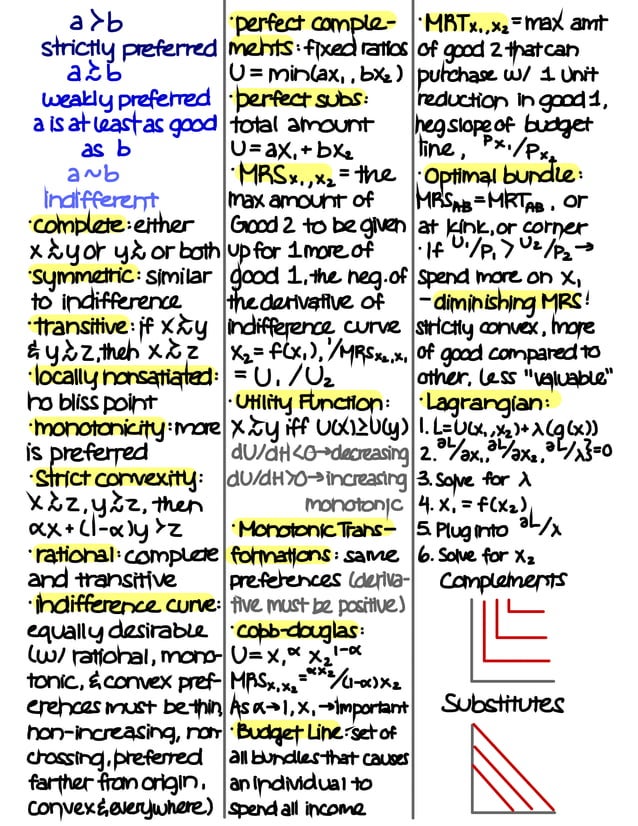 a > b
strictly preferred
a ≿ b
weakly preferred
a is at least as good
as b
a ~ b
Indifferent
·complete: either
x ≿ y or y ≿ or both
·symmetric: similar
to indifference
·transitive: if x ≿ y
& y ≿ z, then x ≿ z
·locally nonsatiated:
no bliss point
·monotonicity: more
is preferred
·strict convexity:
x ≿ z, y ≿ z, then
αx + (1-α)y > z
·rational: complete
and transitive
·indifference curve:
equally desirable
(w/ rational, mono-
tonic, & convex pref-
erences must be thin,
non-increasing, non
crossing, preferred
farther from origin,
convex & everywhere)
·perfect comple-
ments: fixed ratios
U = min(ax₁, bx₂)
·perfect subs:
total amount
U = ax₁ + bx₂
·MRSx₁,x₂ = the
max amount of
Good 2 to be given
up for 1 more of
good 1, the neg. of
the derivative of
indifference curve
x₂ = f(x₁), 1/MRSx₂,x₁
= U₁/U₂
·Utility Function:
x ≿ y iff U(x) ≥ U(y)
dU/dH<0→decreasing
dU/dH>0→increasing
monotonic
·Monotonic Trans-
formations: same
preferences (deriva-
tive must be positive)
·cobb-douglas:
U = x₁^α x₂^1-α
MRSx₁x₂ = αx₂/(1-α)x₂
As α→1, x₁→important
·Budget Line: set of
all bundles that causes
an individual to
spend all income
·MRTx₁,x₂ = max amt
of good 2 that can
purchase w/ 1 unit
reduction in good 1,
neg slope of budget
line, Px₁/Px₂
·Optimal bundle:
MRS_AB = MRT_AB, or
at kink, or corner
·If U₁/P₁ > U₂/P₂ →
spend more on x₁
-diminishing MRS:
strictly convex, more
of good compared to
other, less "valuable"
·Lagrangian:
1. L=U(x₁,x₂)+λ(g(x))
2. ∂L/∂x₁, ∂L/∂x₂, ∂L/λ}=0
3. Solve for λ
4. x₁ = f(x₂)
5. Plug into ∂L/λ
6. Solve for x₂
Complements
Substitutes